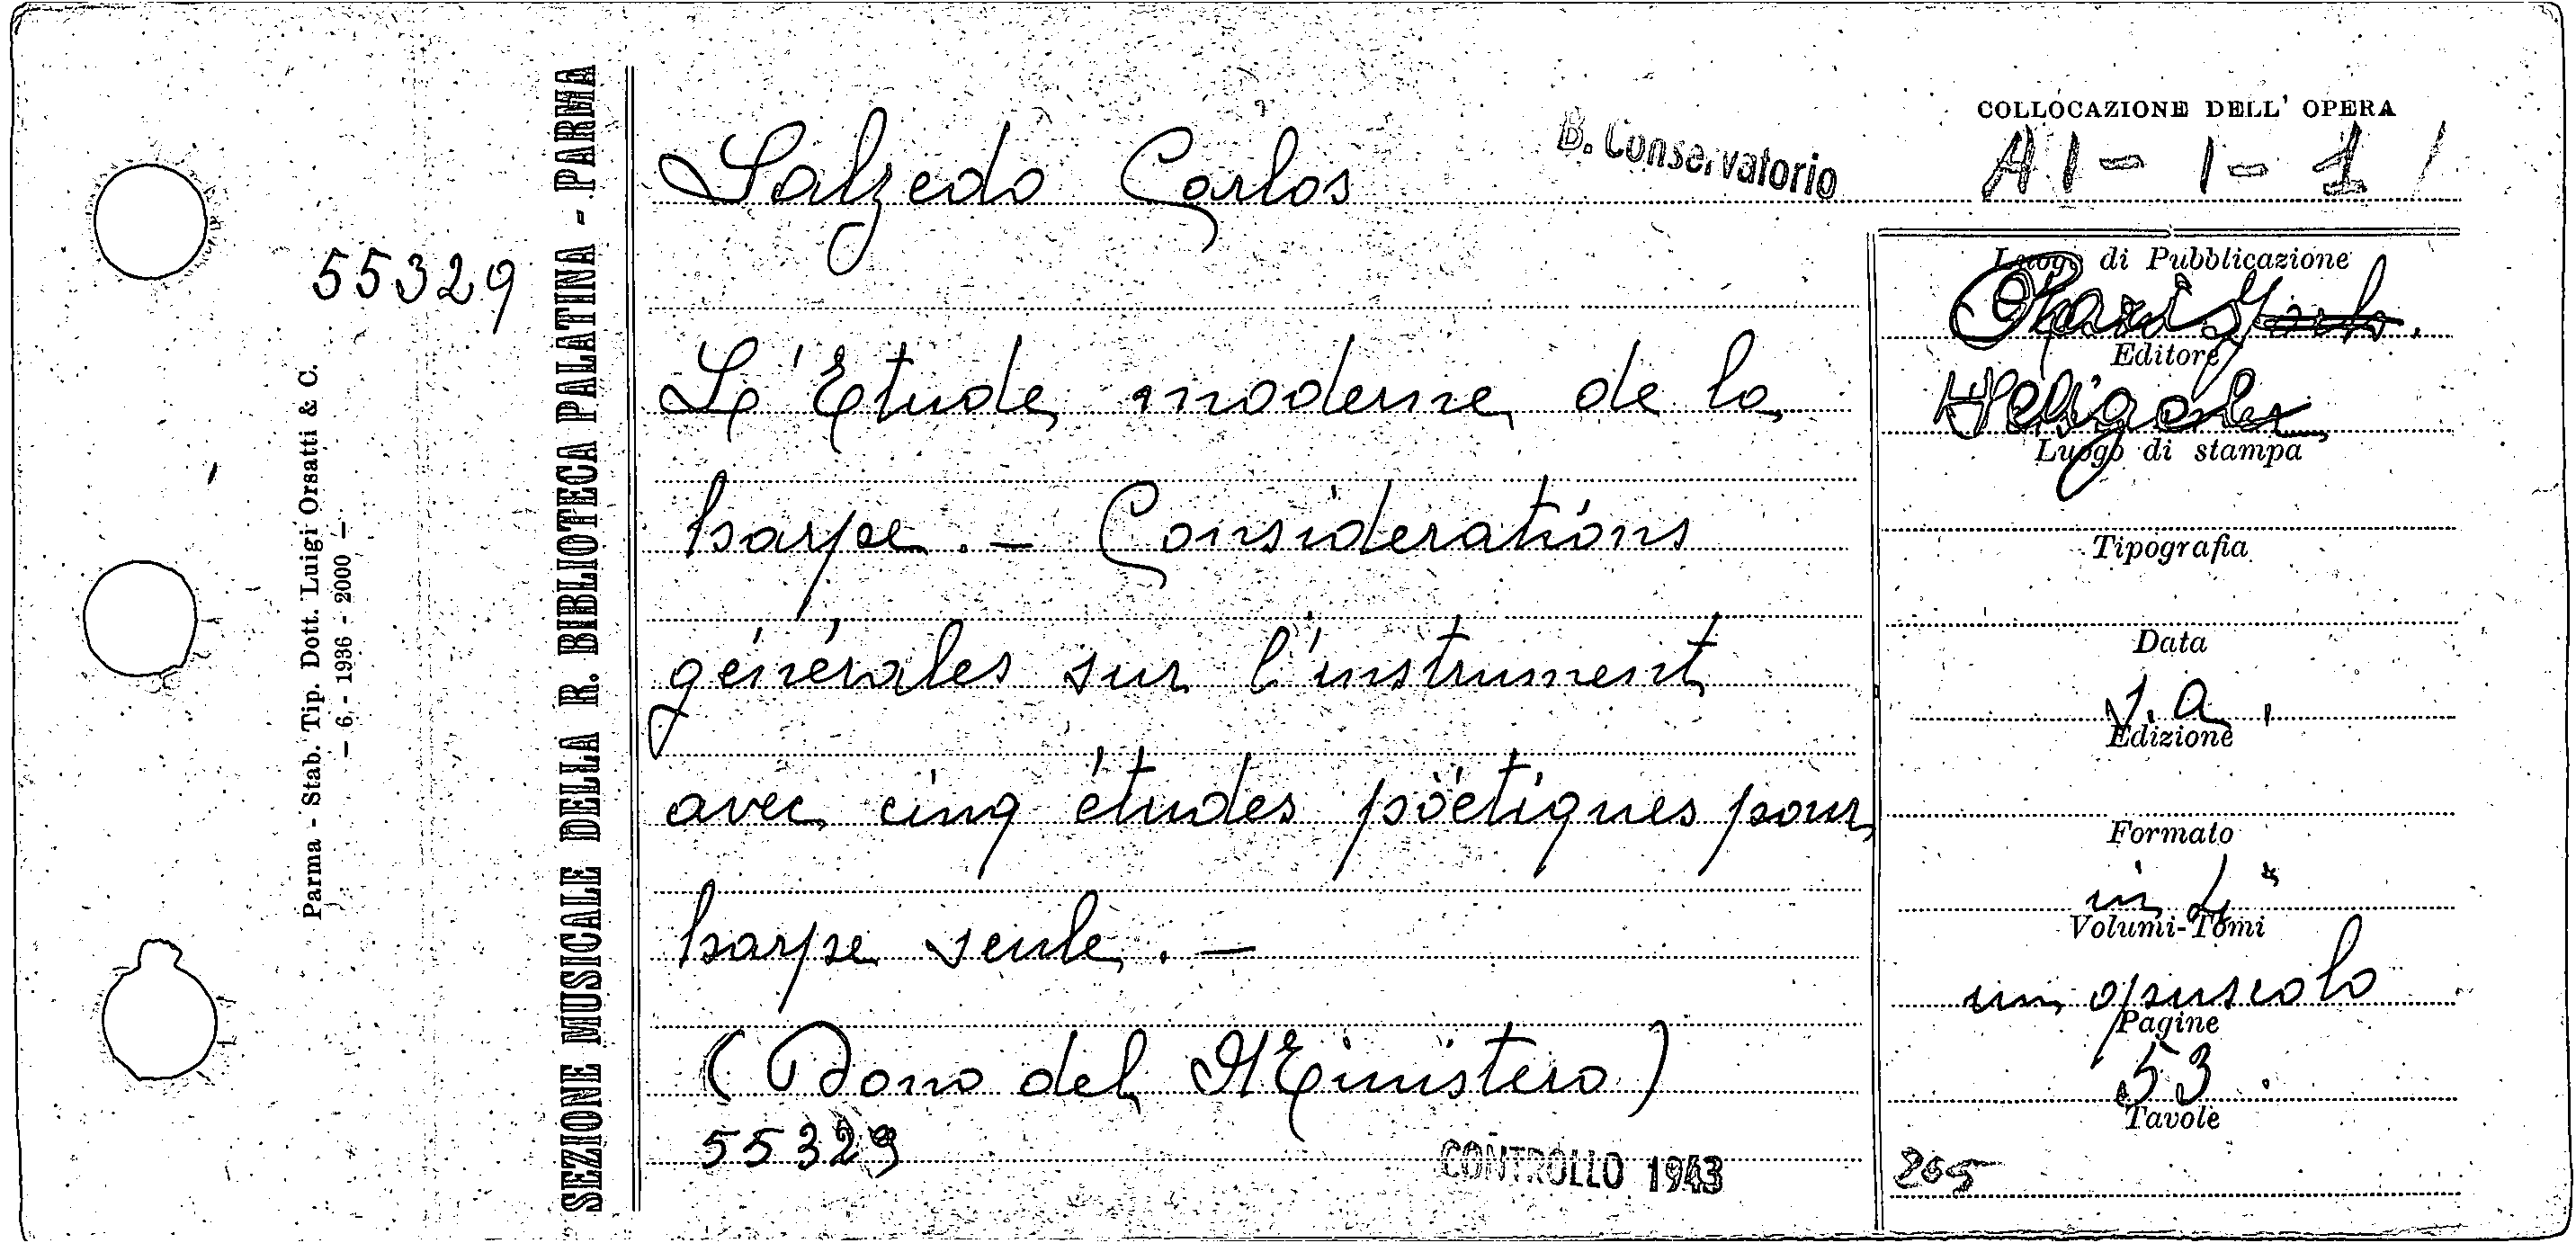 55329
Parma - Stab. Tip. Dott. Luigi Orsatti & C.
— 6 - 1936 - 2000 —
SEZIONE MUSICALE DELLA R. BIBLIOTECA PALATINA - PARMA
Salzedo Carlos
B. Conservatorio
L'Etude moderne de la
harpe. — Considerations
générales sur l'instrument
avec cinq études pöétiques pour
harpe seule. —
(Dono del Ministero)
55329
CONTROLLO 1943
COLLOCAZIONE DELL' OPERA
A I - I - 1
Luogo di Pubblicazione
Editore
Luogo di stampa
Tipografia
Data
s. a.
Edizione
Formato
in 4°
Volumi-Tomi
un opuscolo
Pagine
53.
Tavole
265